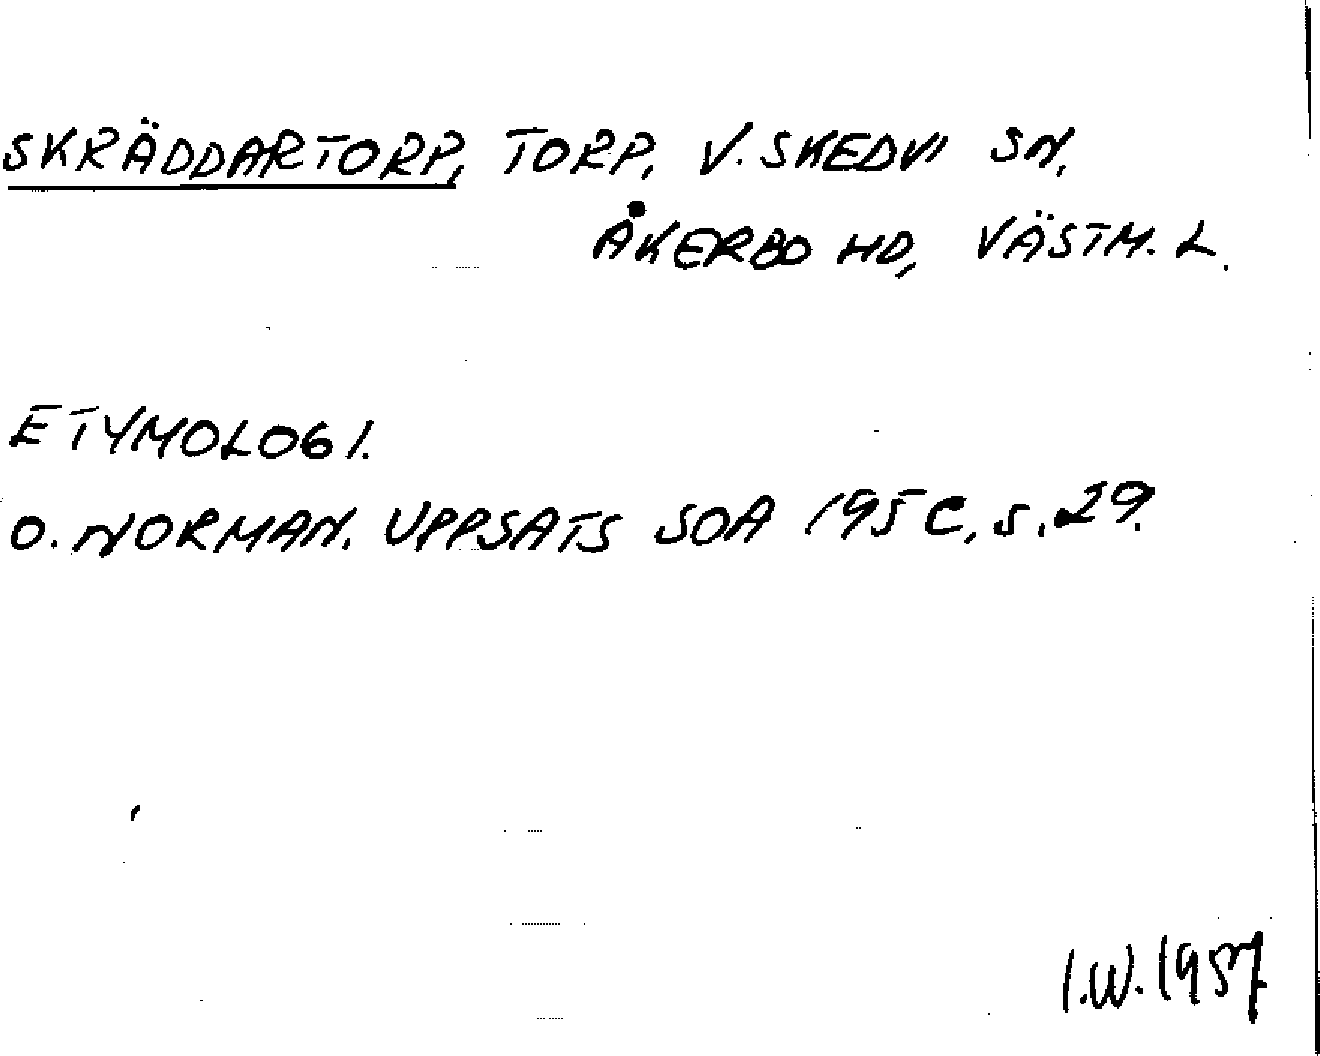 SKRÄDDARTORP, TORP, V. SKEDVI SN,
ÅKERBO HD, VÄSTM. L.
ETYMOLOGI.
O. NORMAN. UPPSATS SOA 195C, S. 29.
I.W. 1957